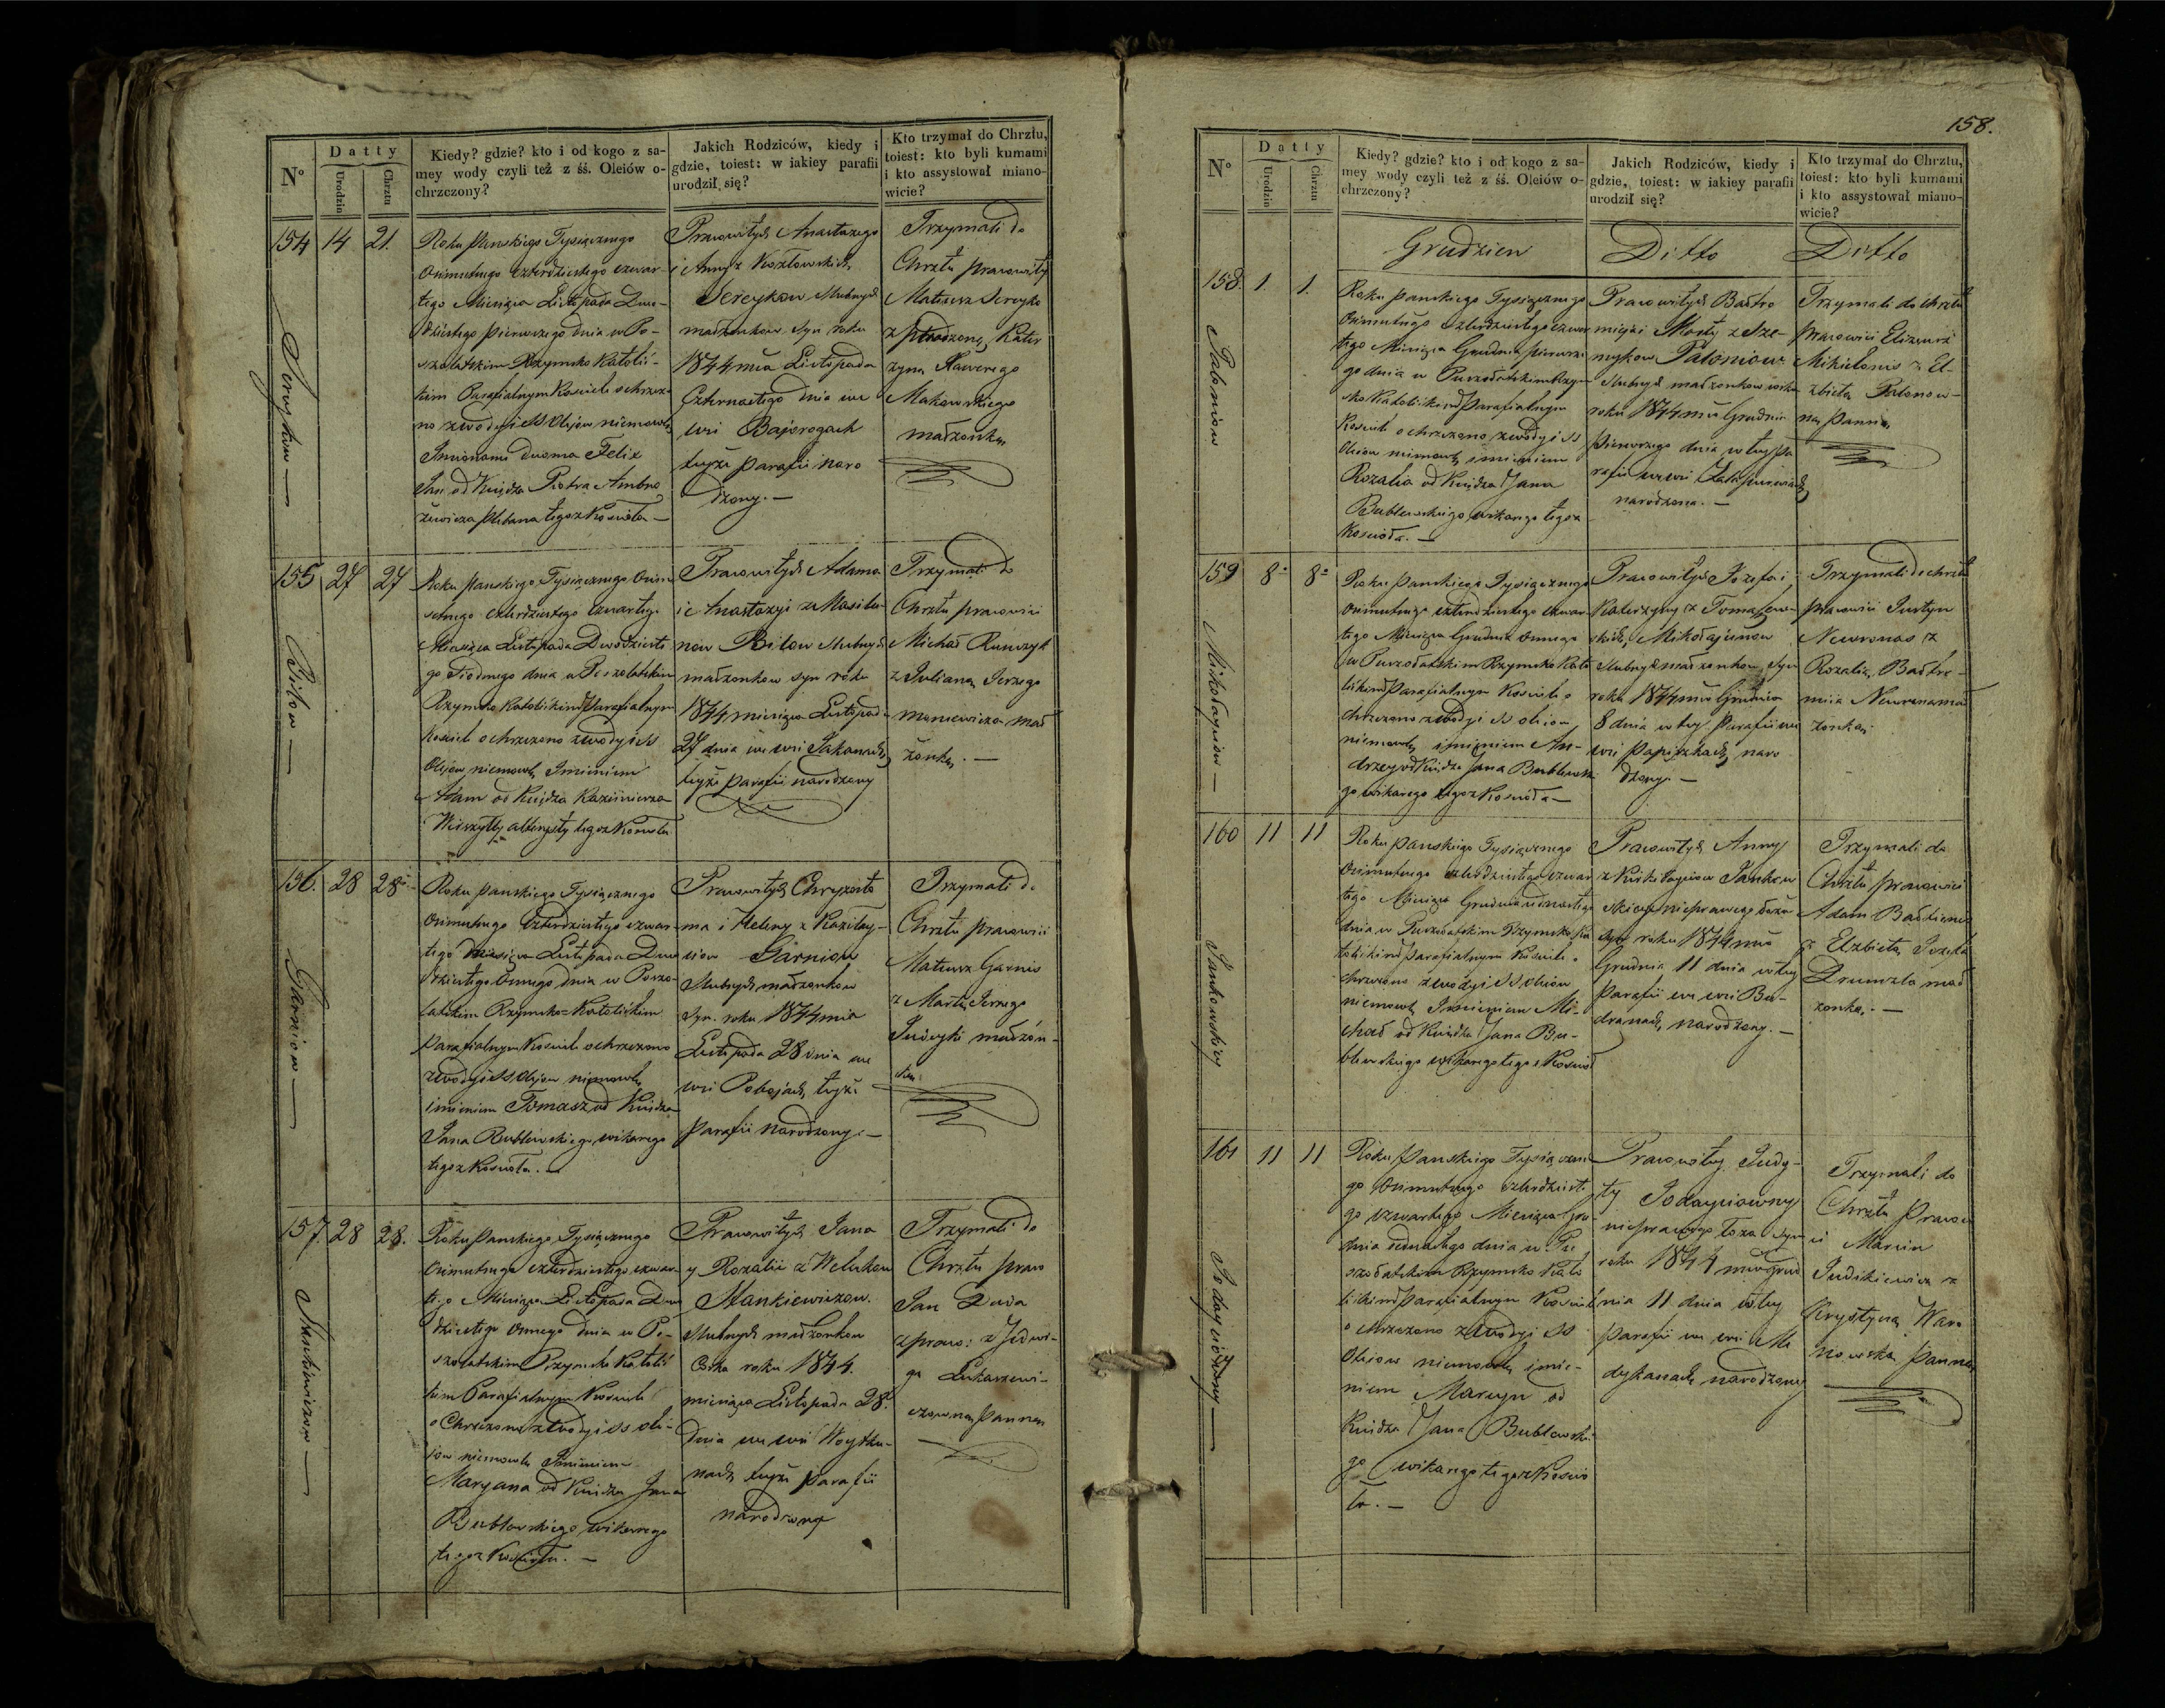 N°
Datty
Urodzin
Chrztu
Kiedy? gdzie? kto i od kogo z sa-
mey wody czyli też z śś. Oleiów o-
chrzczony?
Jakich Rodziców, kiedy i
gdzie, toiest: w iakiey parafii
urodził się?
Kto trzymał do Chrztu,
toiest: kto byli kumami
i kto assystował miano-
wicie?
154 14 21.
Roku Panskiego Tysiącznego
Osmsetnego czterdziestego czwar-
tego Miesiąca Listopada Dwu-
dziestego pierwszego dnia w Po-
szołatskim Rzymsko Katolic-
kim Parafialnym Kosciele ochrzczo-
no z wody i SS Olejow niemowle
Imionami dwoma Felix
Jan od Księdza Piotra Ambro
żewicza Plebana tegoz Koscioła —
Pracowitych Anastazego
i Anny z Kozłowskich
Sereykow slubnych
małżonkow Syn roku
1844 mca Listopada
Czternastego dnia we
wsi Bajorogach
teyże Parafii naro
dzony. —
Trzymali do
Chrztu pracowity
Mateusz Sereyko
Xawerego
Makowskiego
małżonką
155 27 27
Roku Panskiego Tysiącznego Osm
setnego czterdziestego czwartego
Miesiąca Listopada Dwodzieste
go Siodmego dnia w Poszołatskim
Rzymsko Katolickim Parafialnym
Kosciele ochrzczono z wody i SS
Olejow niemowle Imieniem
Adam od Księdza Kazimierza
tegoz Koscioła
Pracowitych Adama
i Anastazyi z Masiula-
now Bitow slubnych
małżonkow syn roku
1844 miesiąca Listopada
27 dnia we wsi
teyże parafii narodzony
Bitow —
Trzymali do
Chrztu pracowici
Michał
z Julianą Jerzego
żonką. —
156. 28 28
Roku Panskiego Tysiącznego
Osmsetnego Czterdziestego czwar-
tego Miesiąca Listopada Dwu
dziestego Osmego dnia w Poszo-
łatskim Rzymsko=Katolickim
Parafialnym Kosciele ochrzczono
z wody i SS Olejow niemowle
imieniem Tomasz od Księdza
Jana Bublewskiego wikarego
tegoz Koscioła. —
Garniow —
Pracowitych Chryzosto
ma i Heleny z
Garniow
slubnych małżonkow
Syn roku 1844 mca
Listopada 28 dnia we
wsi Pobojach teyże
Parafii narodzony. —
Trzymali do
Chrztu pracowici
Mateusz Garnis
z Martą Jerzego
małżon-
ką
157. 28 28.
Roku Panskiego Tysiącznego
Osmsetnego czterdziestego czwar-
tego Miesiąca Listopada Dwu
dziestego Osmego dnia w Po-
szołatskim Rzymsko Katolic
kim Parafialnym Kosciele
o Chrzczono z wody i SS ole-
jow niemowle Imieniem
Maryana od Księdza Jana
Bublewskiego wikarego
tegoz Koscioła. —
Stankiewiczow —
Pracowitych Jana
y Rozalii z
Stankiewiczow
slubnych małżonkow
Corka roku 1844.
miesiąca Listopada 28.
dnia we wsi Woytku-
nach teyże Parafii
narodzona
Trzymali do
Chrztu praco
Jan Duda
z praco: z Jadwi-
gą Łukaszewi-
czowną Panną
158.
N°
Datty
Urodzin
Chrztu
Kiedy? gdzie? kto i od kogo z sa-
mey wody czyli też z śś. Oleiów o-
chrzczony?
Jakich Rodziców, kiedy i
gdzie, toiest: w iakiey parafii
urodził się?
Kto trzymał do Chrztu,
toiest: kto byli kumami
i kto assystował miano-
wicie?
Grudzien Ditto Ditto
158. 1. 1.
Roku panskiego Tysiącznego
Osmsetnego Czterdziestego czwar
tego Miesiąca Grudnia pierwsze
go dnia w Puszołatskim Rzym
sko Katolickim Parafialnym
Kosciele ochrzczono z wody i SS
Olejow niemowle imieniem
Rozalia od Księdza Jana
Bublewskiego wikarego tegoz
Koscioła. —
Paloniow
Pracowitych Bartło
mieja i Marty z Sze-
mykow Paloniow
slubnych małżonkow corka
roku 1844 mca Grudnia
Pierwszego dnia w tey pa
rafii we wsi
narodzona. —
Trzymali do Chrztu
pracowici Elizeusz
Mikielonis z El-
zbietą Palonow-
ną Panną
159 8. 8.
Roku Panskiego Tysiącznego
Osmsetnego czterdziestego czwar-
tego Miesiąca Grudnia Osmego
w Puszołatskim Rzymsko Kato
lickim Parafialnym Kosciele o
chrzczono z wody i SS olejow
niemowle imieniem An-
drzey od Księdza Jana Bublewski
go wikarego tegoz Koscioła —
Mikołajunow —
Pracowitych Jozefa i
Katarzyny z Tomaszew-
skich Mikołajunow
slubnych małżonkow syn
roku 1844 mca Grudnia
8 dnia w tey Parafii we
wsi Papiszkach naro
dzony. —
Trzymali do chrztu
pracowici Justyn
Newronas z
Rozalią Bartło-
mieia Newronama
żonką.
160 11 11
Roku panskiego Tysiącznego
Osmsetnego czterdziestego czwar
tego Miesiąca Grudnia iednastego
dnia w Puszołatskim Rzymsko Ka
tolickim Parafialnym Kosciele o
chrzczono z wody i SS olejow
niemowle Imieniem Mi-
chał od Księdza Jana Bu-
blewskiego wikarego tegoz Koscioł
Jankowskiey
Pracowitey Anny
Jankow
skiey nieprawego łoża
syn roku 1844 mca
Grudnia 11 dnia w tey
Parafii we wsi Bu-
dranach narodzony. —
Trzymali do
Chrztu pracowici
Adam
z Elzbietą Jozefa
Drumzla mał
żonką. —
161 11 11
Roku Panskiego Tysiączne
go Osmsetnego czterdzieste
go czwartego Miesiąca Gru-
dnia iednastego dnia w Pu
szołatskim Rzymsko Kato
lickim Parafialnym Kosciele
o chrzczono z wody i SS
Olejow niemowle imie-
niem Marcyn od
Księdza Jana Bublewski
go wikarego tegoz Koscio
ła. —
Pracowitey Judy-
ty
nieprawego łoża syn
roku 1844 mca Grud
nia 11 dnia w tey
parafii we wsi Me
dykanach narodzony
Trzymali do
Chrztu Pracow
ci Marcin
Judikiewicz z
Krystyną Waro
nowską Panną